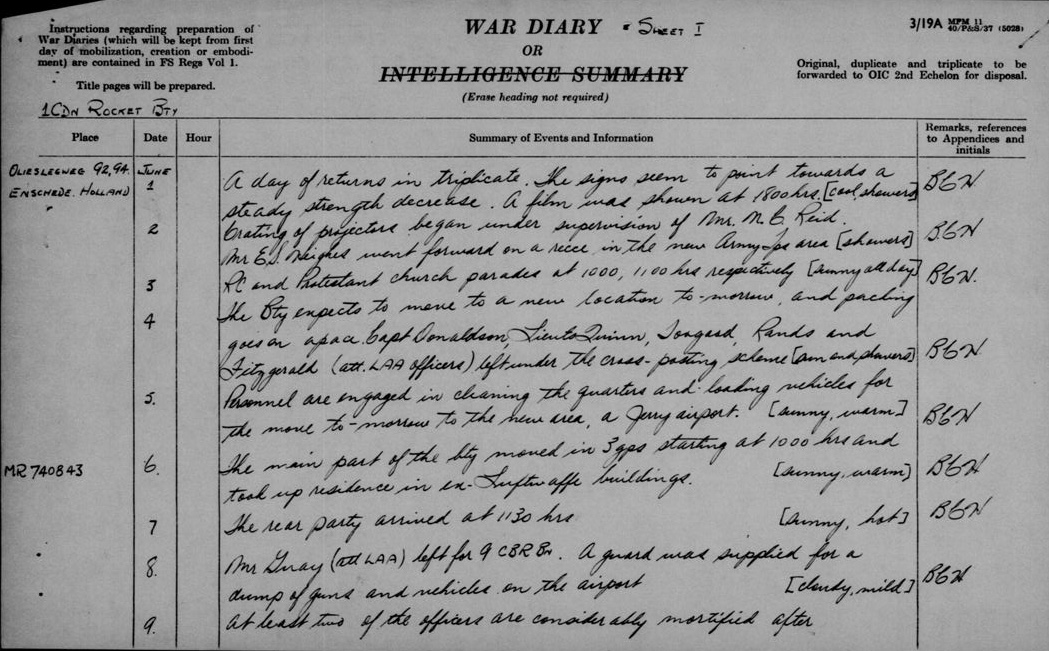 Instructions regarding preparation of
War Diaries (which will be kept from first
day of mobilization, creation or embodi-
ment) are contained in FS Regs Vol 1.
Title pages will be prepared.
WAR DIARY Sheet I
OR
INTELLIGENCE SUMMARY
(Erase heading not required)
3/19A MFM 11
40/P&S/37 (5028)
Original, duplicate and triplicate to be
forwarded to OIC 2nd Echelon for disposal.
1 CDN ROCKET BTY
Place Date Hour Summary of Events and Information Remarks, references
to Appendices and
initials
OLIESLEGWEG 92,94. JUNE
ENSCHEDE. HOLLAND
1 A day of returns in triplicate. The signs seem to point towards a
steady strength decrease. A film was shown at 1800 hrs. [cool, showers]
2 Crating of projectors began under supervision of Mr. M.C. Reid.
Mr E.S. went forward on a recce in the new Army Tps area [showers]
3 RC and Protestant church parades at 1000, 1100 hrs respectively [sunny all day]
4 The Bty expects to move to a new location to-morrow, and packing
goes on apace. Capt Donaldson, Lieuts Quinn, Rands and
Fitzgerald (att. LAA officers) left under the cross-posting scheme [sun and showers]
5. Personnel are engaged in cleaning the quarters and loading vehicles for
the move to-morrow to the new area, a Jerry airport. [sunny, warm]
MR 740843 6. The main part of the bty moved in 3 gps starting at 1000 hrs and
took up residence in ex-Luftwaffe buildings. [sunny, warm]
7 The rear party arrived at 1130 hrs [sunny, hot]
8. Mr Gray (att LAA) left for 9 CBR Bn. A guard was supplied for a
dump of guns and vehicles on the airport [cloudy, mild]
9. At least two of the officers are considerably mortified after